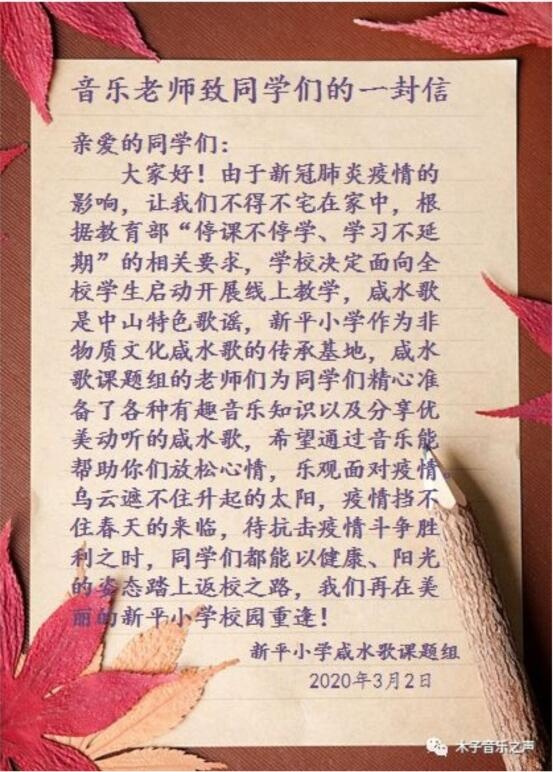 音乐老师致同学们的一封信
亲爱的同学们：
大家好！由于新冠肺炎疫情的
影响，让我们不得不宅在家中，根
据教育部“停课不停学、学习不延
期”的相关要求，学校决定面向全
校学生启动开展线上教学，咸水歌
是中山特色歌谣，新平小学作为非
物质文化咸水歌的传承基地，咸水
歌课题组的老师们为同学们精心准
备了各种有趣音乐知识以及分享优
美动听的咸水歌，希望通过音乐能
帮助你们放松心情，乐观面对疫情。
乌云遮不住升起的太阳，疫情挡不
住春天的来临，待抗击疫情斗争胜
利之时，同学们都能以健康、阳光
的姿态踏上返校之路，我们再在美
丽的新平小学校园重逢！
新平小学咸水歌课题组
2020年3月2日
木子音乐之声